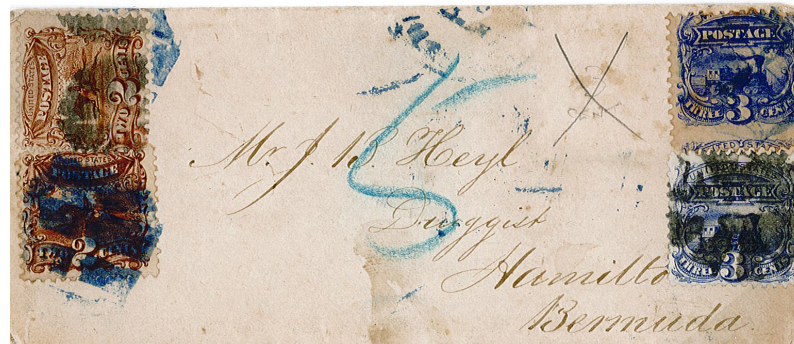 UNITED STATES
POSTAGE
TWO 2 CENTS
UNITED STATES
POSTAGE
TWO 2 CENTS
POSTAGE
THREE 3 CENTS
UNITED STATES
POSTAGE
THREE 3 CENTS
5
Mr J. B. Heyl
Druggist
Hamilto
Bermuda.